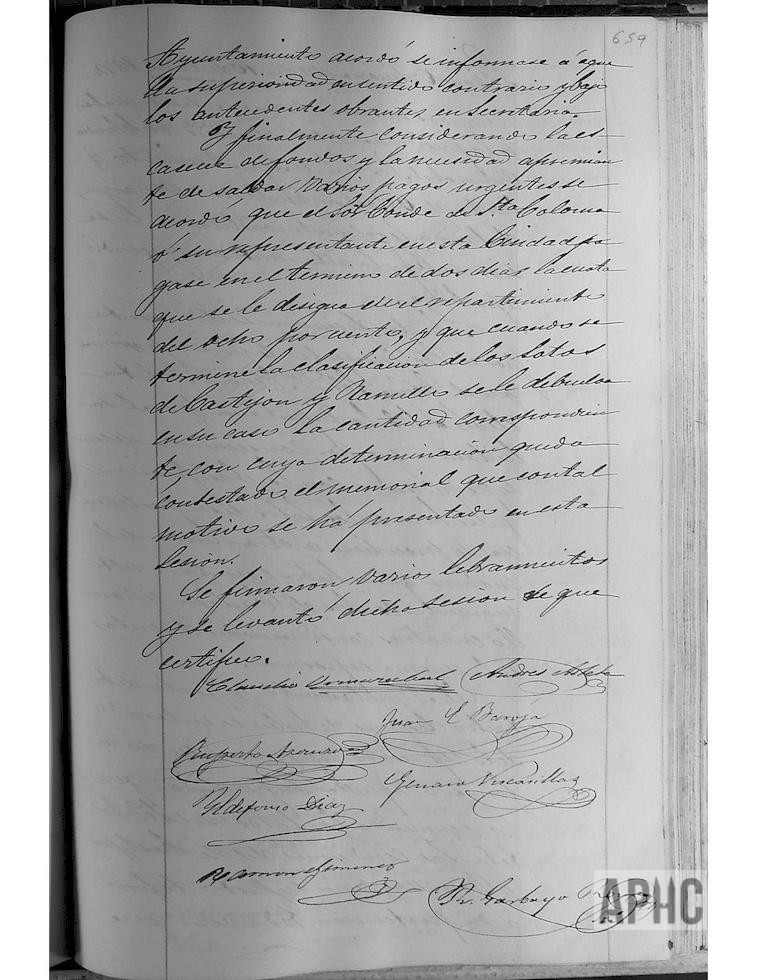 659
Ayuntamiento acordó se informase á aque
lla superioridad en sentido contrario y bajo
los antecedentes obrantes en Secretaria.
Y finalmente considerando la es
casez de fondos y la necesidad apremian
te de saldar varios pagos urgentes se
acordó, que el Sor Conde de Sta Coloma
ó su representante en esta Ciudad pa
gase en el termino de dos dias la cuota
que se le designa en el repartimiento
del ocho por ciento, y que cuando se
termine la clasificacion de los Sotos
de Castejon y Ramillo se le debuelva
en su caso la cantidad correspondien
te, con cuya determinacion queda
contestado el memorial que con tal
motivo se há presentado en esta
Sesion.
Se firmaron varios libramientos
y se levantó dicha sesion de que
certifico.
Claudio Andres
Juan E Baroja
Ruperto
Genaro
Yldefonso Diaz
Ramon Gimenez
R. Garbayo
APHC